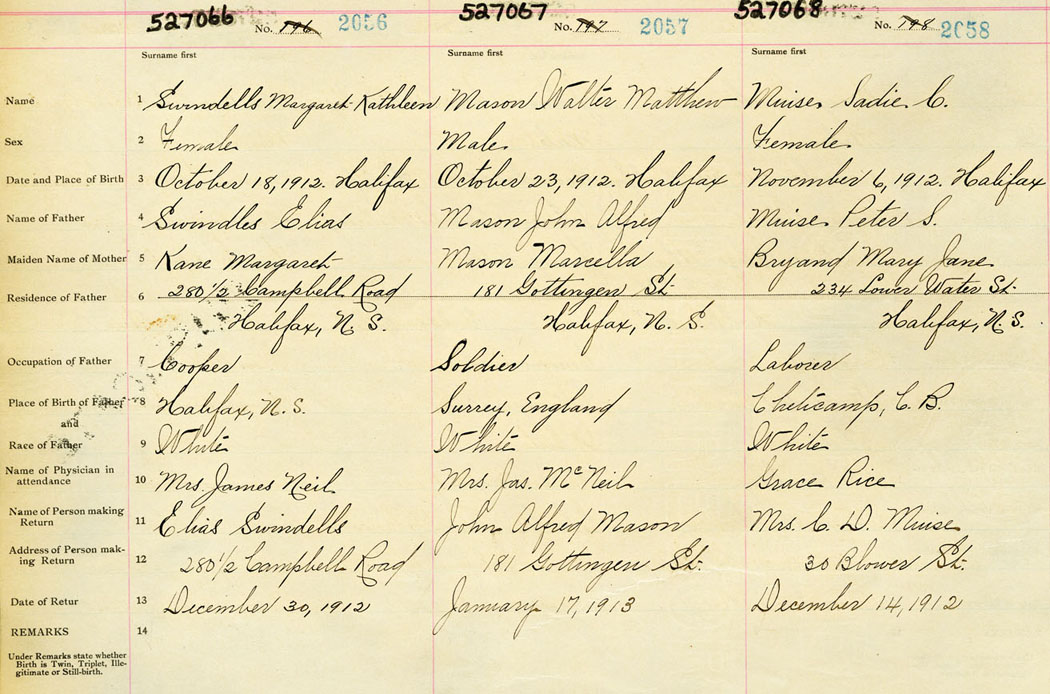 527066 No. 796 2056 527067 No. 797 2057 527068 No. 798 2058
Surname first Surname first Surname first
Name 1 Swindells Margaret Kathleen Mason Walter Matthew Muise Sadie C.
Sex 2 Female Male Female
Date and Place of Birth 3 October 18, 1912. Halifax October 23, 1912. Halifax November 6, 1912. Halifax
Name of Father 4 Swindles Elias Mason John Alfred Muise Peter S.
Maiden Name of Mother 5 Kane Margaret Mason Marcella Bryand Mary Jane
Residence of Father 6 280 1/2 Campbell Road 181 Gottingen St. 234 Lower Water St.
Halifax, N.S. Halifax, N.S. Halifax, N.S.
Occupation of Father 7 Cooper Soldier Laborer
Place of Birth of Father 8 Halifax, N.S. Surrey, England Cheticamp, C.B.
and
Race of Father 9 White White White
Name of Physician in
attendance 10 Mrs James Neil Mrs. Jas. McNeil Grace Rice
Name of Person making
Return 11 Elias Swindells John Alfred Mason Mrs. C. D. Muise
Address of Person mak-
ing Return 12 280 1/2 Campbell Road 181 Gottingen St. 30 Blower St.
Date of Retur 13 December 30, 1912 January 17, 1913 December 14, 1912
REMARKS 14
Under Remarks state whether
Birth is Twin, Triplet, Ille-
gitimate or Still-birth.